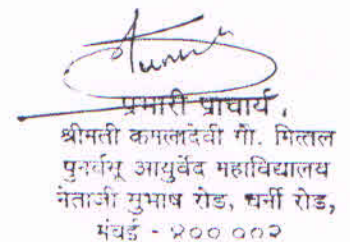 प्रभारी प्राचार्य,
श्रीमती कमलादेवी गौ. मित्तल
पुनर्वसू आयुर्वेद महाविद्यालय
नेताजी सुभाष रोड, चर्नी रोड,
मुंबई - ४०० ००२